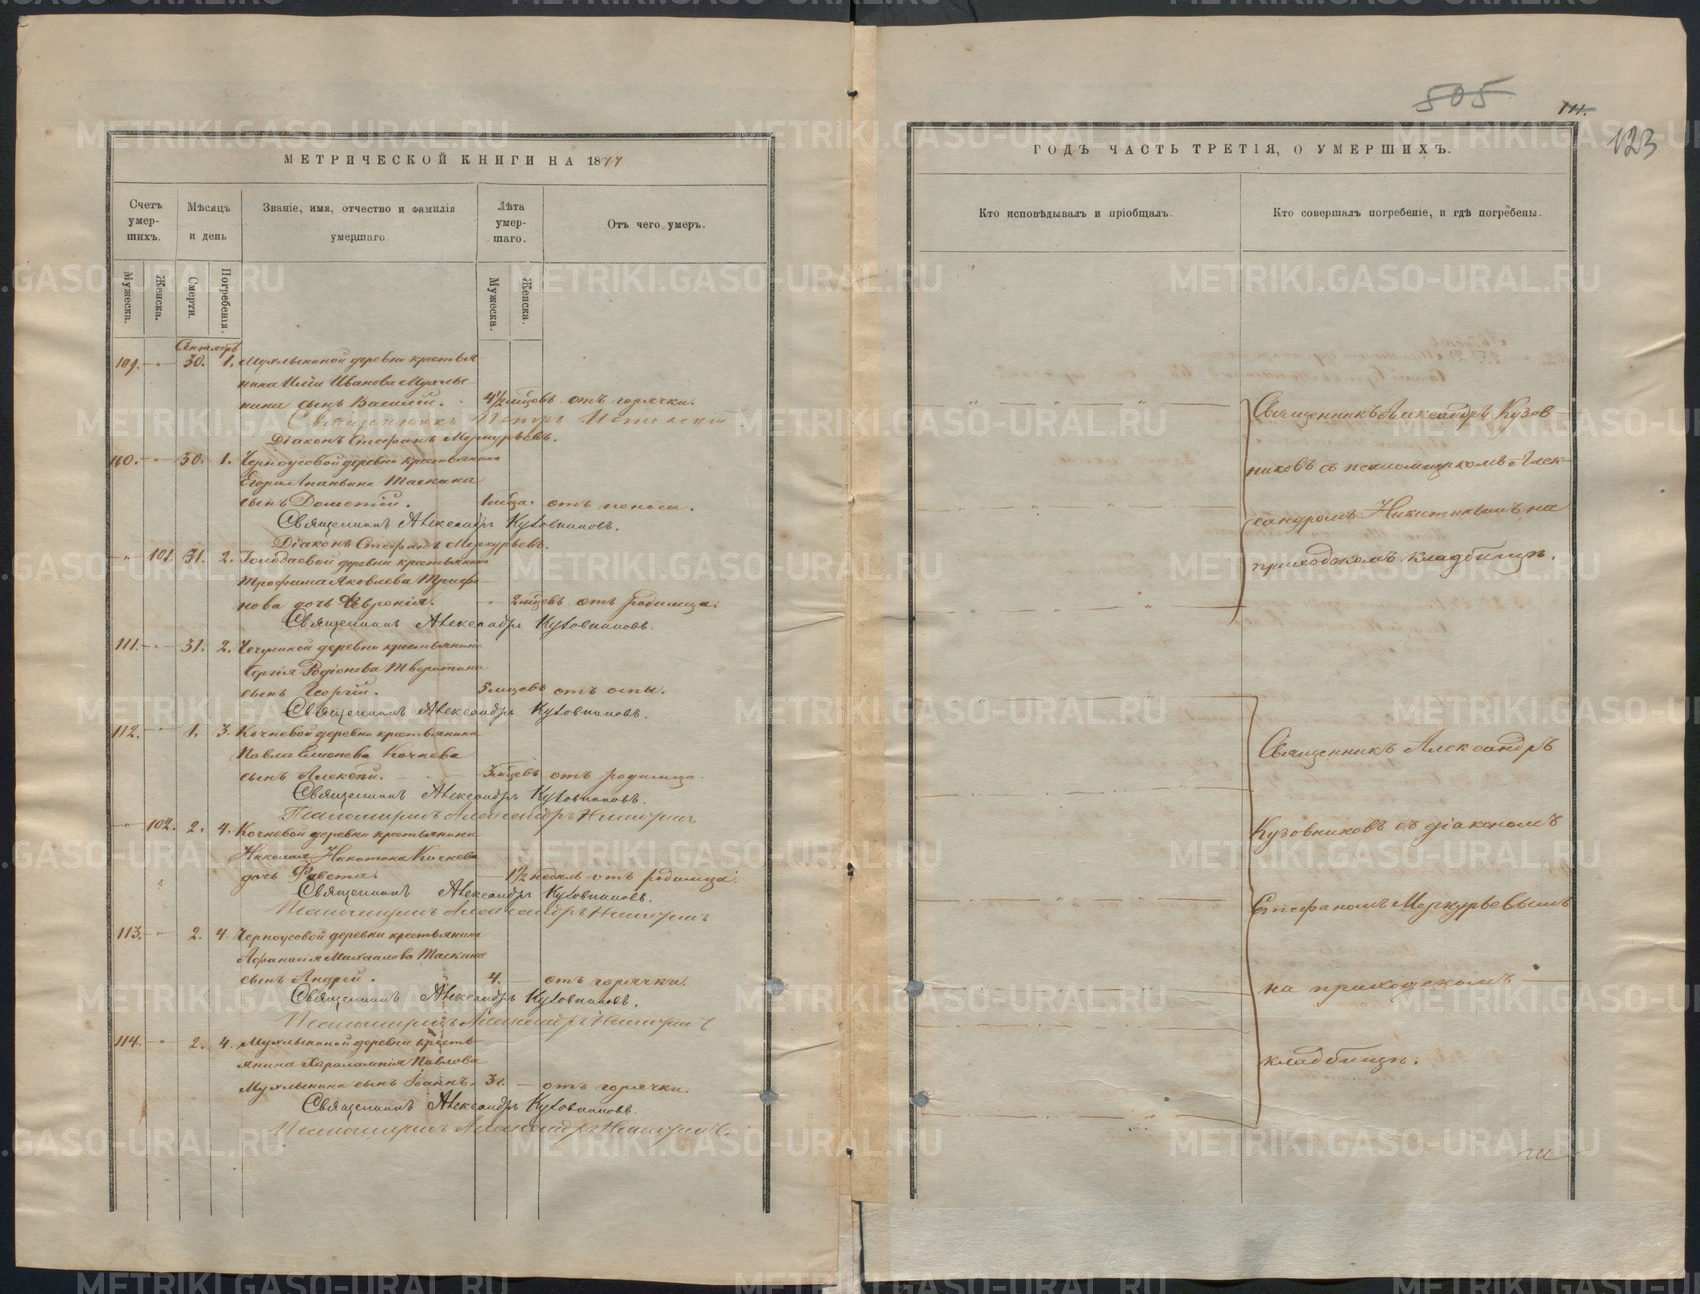 МЕТРИЧЕСКОЙ КНИГИ НА 1877
Счетъ умер-шихъ.
Мѣсяцъ и день
Званіе, имя, отчество и фамилія умершаго.
Лѣта умер-шаго.
Отъ чего умеръ.
Мужеска.
Женска.
Смерти.
Погребенія.
Мужеска.
Женска.
109. - " - 30. 1. деревни крестья
нина Ильи Иванова
сынъ Василій. 4½ мцовъ отъ горячки.
Священникъ Петръ
Діаконъ Стефанъ Меркурьевъ.
110. - " - 30. 1. Черноусовой деревни крестьянина
Егора Ананьина Таскина
сынъ Дометій. 1 мца. отъ поноса.
Священникъ Александръ Кузовниковъ.
Діаконъ Стефанъ Меркурьевъ.
" 101. 31. 2. деревни крестьянина
Трофима Яковлева Трифо
нова дочь Февронія. " 2 мцевъ отъ родимца.
Священникъ Александръ Кузовниковъ.
111. - " - 31. 2. деревни крестьянина
Сергія Родіонова
сынъ Георгій. 5 мцевъ отъ оспы.
Священникъ Александръ Кузовниковъ.
112. - " 1. 3. Кочневой деревни крестьянина
Павла Кочнева
сынъ Алексѣй. 3 мцевъ отъ родимца.
Священникъ Александръ Кузовниковъ.
Псаломщикъ Александръ Никитинъ
" 102. 2. 4. Кочневой деревни крестьянина
Николая Никитина Кочнева
дочь 1½ недель отъ родимца.
Священникъ Александръ Кузовниковъ.
Псаломщикъ Александръ Никитинъ
113. - " 2. 4. Черноусовой деревни крестьянина
Афанасія Михаилова Таскина
сынъ Андрей. 4. — отъ горячки.
Священникъ Александръ Кузовниковъ.
Псаломщикъ Александръ Никитинъ
114. - " 2. 4. деревни кресть
янина Харалампія Павлова
сынъ Іоаннъ. 3. — отъ горячки.
Священникъ Александръ Кузовниковъ.
Псаломщикъ Александръ Никитинъ
505
123
ГОДЪ ЧАСТЬ ТРЕТІЯ, О УМЕРШИХЪ.
Кто исповѣдывалъ и пріобщалъ.
Кто совершалъ погребеніе, и гдѣ погребены.
Священникъ Александръ Кузов
никовъ съ псаломщикомъ Алек
сандромъ Никитинымъ на
приходскомъ кладбищѣ.
Священникъ Александръ
Кузовниковъ съ діакономъ
Стефаномъ Меркурьевымъ
на приходскомъ
кладбищѣ.
METRIKI.GASO-URAL.RU